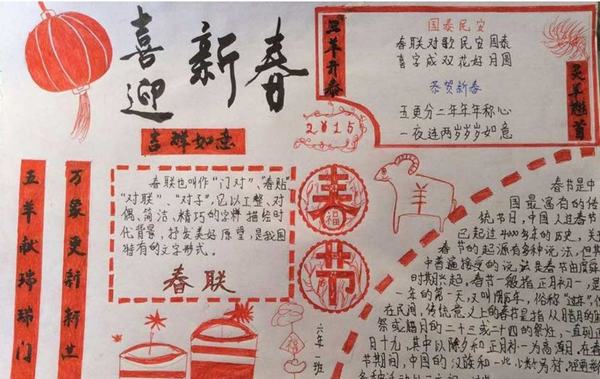 喜迎新春
吉祥如意
五羊献瑞瑞门
万象更新新
春联也叫作"门对"、"春贴"
"对联"、"对子"，它以工整、对
偶、简洁、精巧的字样描绘时
代背景，抒发美好愿望，是我国
特有的文字形式。
春联
2015
春
福
节
三羊开泰
国泰民安
春联对歌民安国泰
喜字成双花好月圆
恭贺新春
五更分二年年年称心
一夜连两岁岁岁如意
羊
六年一班
春节是中
国最富有的传
统节日，中国人过春节
已起过4000多年的历史，关
春节的起源有多种说法，但
中普遍接受的说法是春节由虞舜
时期兴起，春节一般指正月初一，是
一年的第一天，又叫阴历年，俗称"过年"
在民间，传统意义上的春节是指从腊月的
祭或腊月的二十三或二十四的祭灶，一直到正
月十九，其中以除夕和正月初一为高潮日，在春
节期间，中国的汉族和一些少数民族